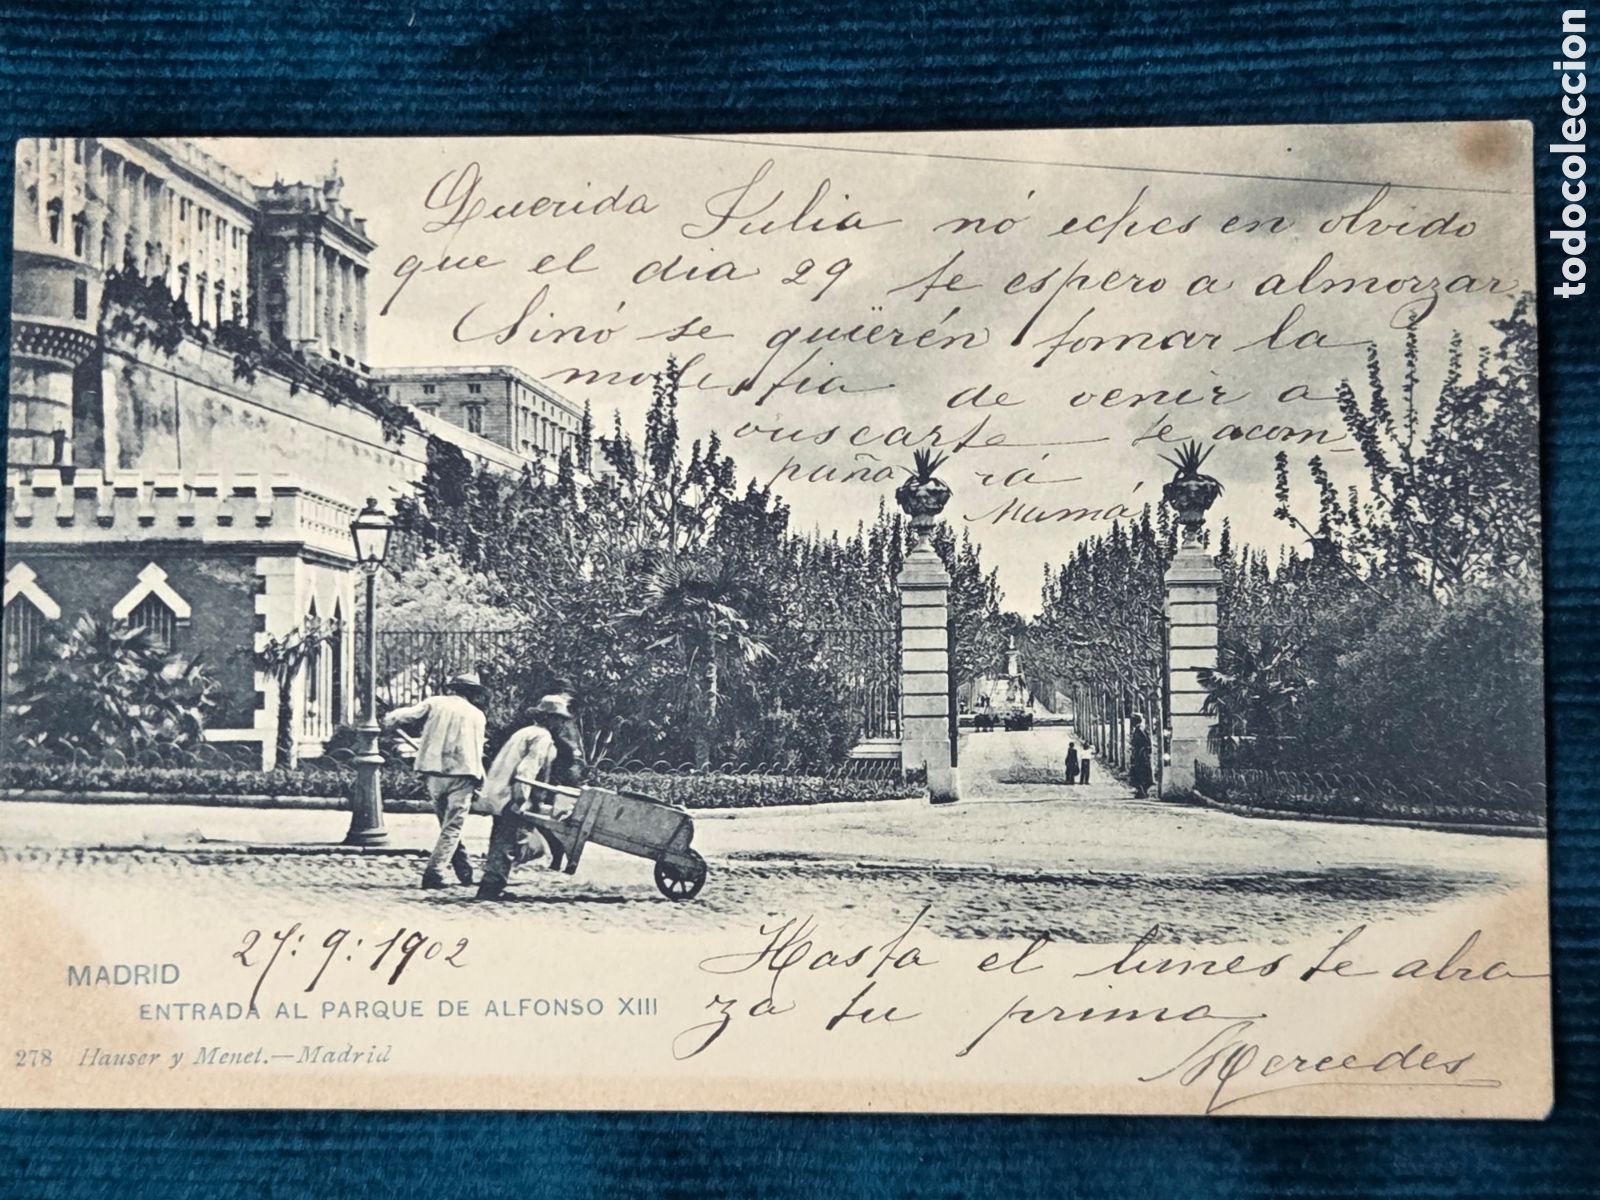 Querida Julia nó eches en olvido
que el dia 29 te espero a almorzar
Sinó se quiërén tomar la
molestia de venir a
vuscarte te acom
pañará
Mamá
27:9:1902
Hasta el lunes te abra
za tu prima
Mercedes
MADRID
ENTRADA AL PARQUE DE ALFONSO XIII
278 Hauser y Menet.—Madrid
todocoleccion